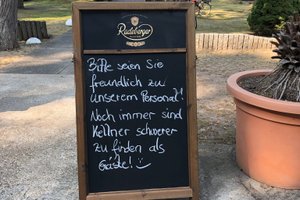 Radeberger
Bitte seien Sie
freundlich zu
unserem Personal!
Noch immer sind
Kellner schwerer
zu finden als
Gäste!